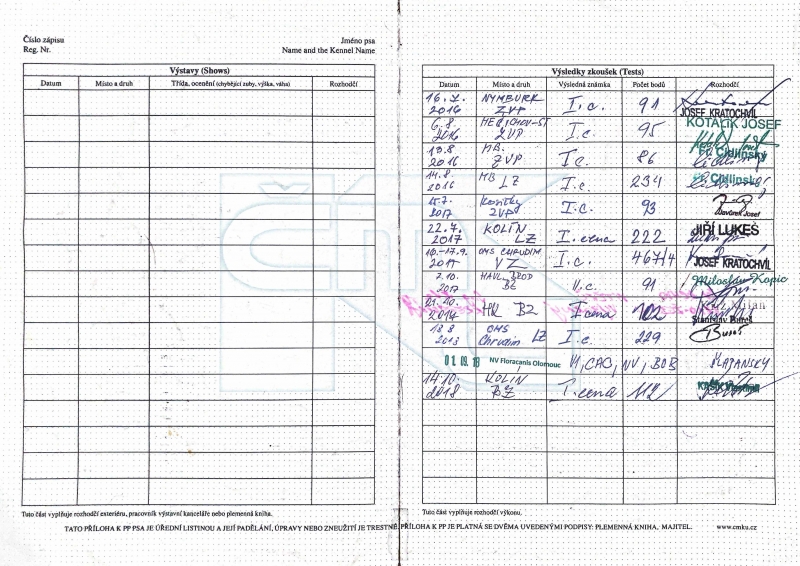 Číslo zápisu
Reg. Nr.
Jméno psa
Name and the Kennel Name
Výstavy (Shows)
Datum Místo a druh Třída, ocenění (chybějící zuby, výška, váha) Rozhodčí
Tuto část vyplňuje rozhodčí exteriéru, pracovník výstavní kanceláře nebo plemenná kniha.
Výsledky zkoušek (Tests)
Datum Místo a druh Výsledná známka Počet bodů Rozhodčí
16. 2016 NYMBURK ZVP I.c. 91 JOSEF KRATOCHVÍL
6.8 2016 ZVP I.c. 95 KOTALÍK JOSEF
13.8 2016 MB. ZVP I c. 86 Cidlinský
14.8. 2016 MB LZ I.c. 234 Cidlinský
2017 ZVP I.c. 93 Josef
22.7. 2017 KOLÍN LZ I. cena 222 JIŘÍ LUKEŠ
16.-17.9. 2017 OMS CHRUDIM VZ I.c. 467/4 JOSEF KRATOCHVÍL
7.10. 2017 HAVL. BROD BZ 91 Miloslav Kopic
21.10. HK BZ I cena 102
Stanislav Bureš
18.8 OMS Chrudim LZ I.c. 229 Bureš
01 09. 18 NV Floracanis Olomouc V1, CAC, NV, BOB MATJANSKY
14.10. 2018 KOLÍN BZ I. cena 112
Tuto část vyplňuje rozhodčí výkonu.
TATO PŘÍLOHA K PP PSA JE ÚŘEDNÍ LISTINOU A JEJÍ PADĚLÁNÍ, ÚPRAVY NEBO ZNEUŽITÍ JE TRESTNÉ. PŘÍLOHA K PP JE PLATNÁ SE DVĚMA UVEDENÝMI PODPISY: PLEMENNÁ KNIHA, MAJITEL. www.cmku.cz